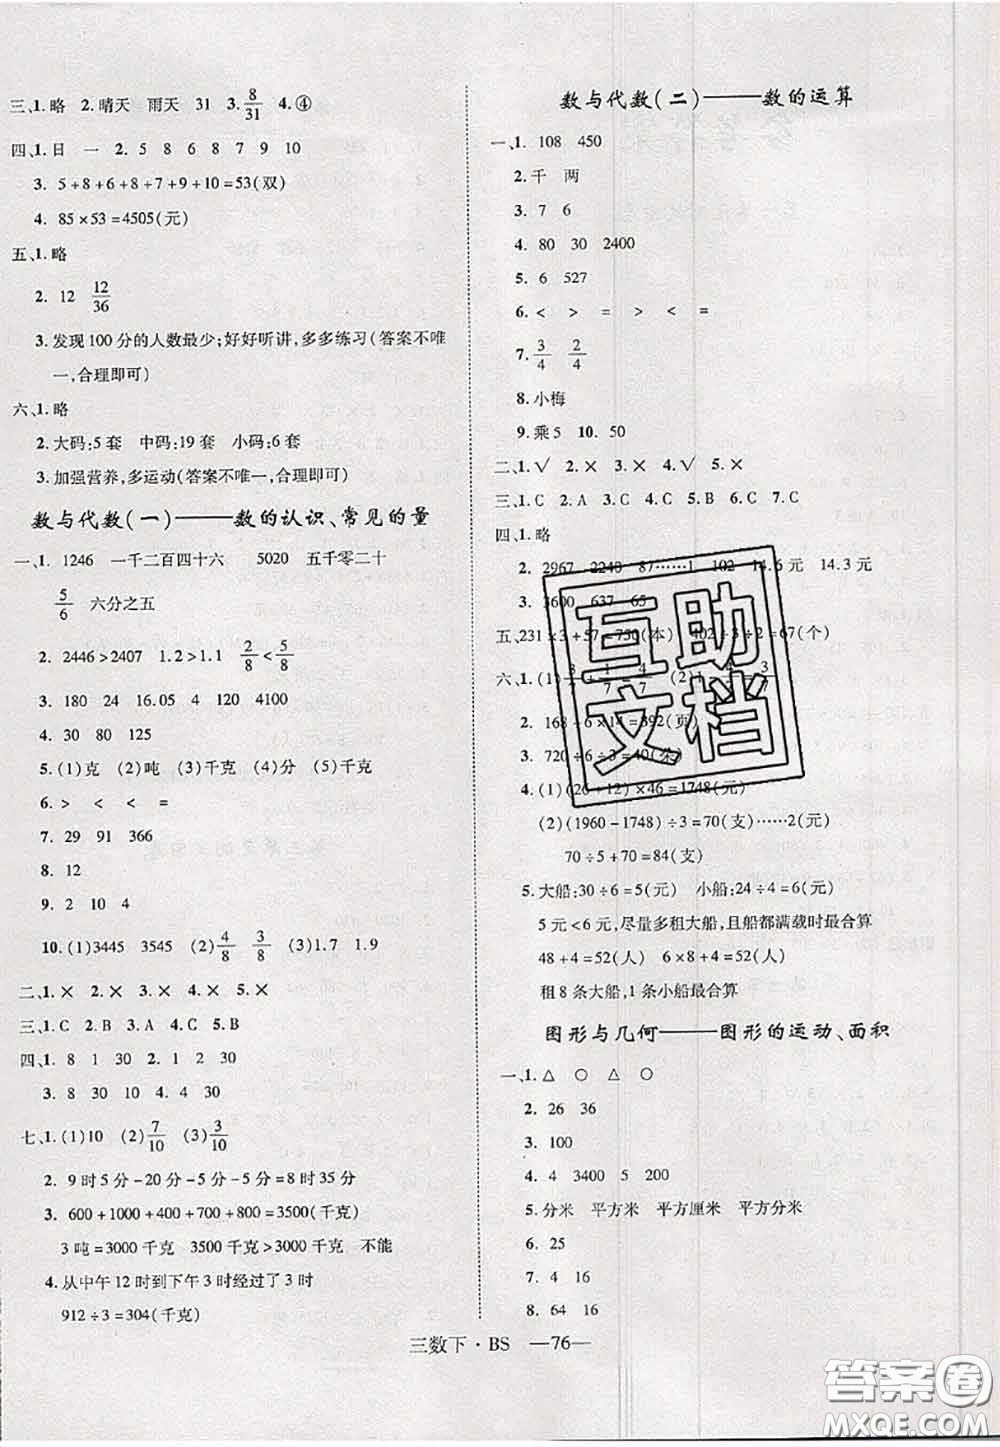 三、1. 略 2. 晴天 雨天 31 3. 8/31 4. ④
四、1. 日 一 2. 5 8 6 8 7 9 10
3. 5+8+6+8+7+9+10=53(双)
4. 85×53=4505(元)
五、1. 略
2. 12 12/36
3. 发现100分的人数最少;好好听讲,多多练习(答案不唯
一,合理即可)
六、1. 略
2. 大码:5套 中码:19套 小码:6套
3. 加强营养,多运动(答案不唯一,合理即可)
数与代数(一)——数的认识、常见的量
一、1. 1246 一千二百四十六 5020 五千零二十
5/6 六分之五
2. 2446>2407 1.2>1.1 2/8<5/8
3. 180 24 16.05 4 120 4100
4. 30 80 125
5. (1)克 (2)吨 (3)千克 (4)分 (5)千克
6. > < < =
7. 29 91 366
8. 12
9. 2 10 4
10. (1)3445 3545 (2)4/8 3/8 (3)1.7 1.9
二、1. × 2. × 3. × 4. × 5. ×
三、1. C 2. B 3. A 4. C 5. B
四、1. 8 1 30 2. 1 2 30
3. 8 30 10 4. 8 30
七、1. (1)10 (2)7/10 (3)3/10
2. 9时5分-20分-5分-5分=8时35分
3. 600+1000+400+700+800=3500(千克)
3吨=3000千克 3500千克>3000千克 不能
4. 从中午12时到下午3时经过了3时
912÷3=304(千克)
数与代数(二)——数的运算
一、1. 108 450
2. 千 两
3. 7 6
4. 80 30 2400
5. 6 527
6. < > = > < =
7. 3/4 2/4
8. 小梅
9. 乘5 10. 50
二、1. √ 2. × 3. × 4. √ 5. ×
三、1. C 2. A 3. C 4. C 5. B 6. C 7. C
四、1. 略
2. 2967 2240 87……1 102 14.6元 14.3元
3. 3600 637 65
五、231×3+57=750(本) 402÷3÷2=67(个)
六、1. (1)3/7+1/7=4/7 (2)1-4/7=3/7
2. 168÷6×14=392(页)
3. 720÷6÷3=40(朵)
4. (1)(26+12)×46=1748(元)
(2)(1960-1748)÷3=70(支)……2(元)
70÷5+70=84(支)
5. 大船:30÷6=5(元) 小船:24÷4=6(元)
5元<6元,尽量多租大船,且船都满载时最合算
48+4=52(人) 6×8+4=52(人)
租8条大船,1条小船最合算
图形与几何——图形的运动、面积
一、1. △ ○ △ ○
2. 26 36
3. 100
4. 4 3400 5 200
5. 分米 平方米 平方厘米 平方分米
6. 25
7. 4 16
8. 64 16
三数下·BS —76—
互助
文档
答案圈
MXQE.COM